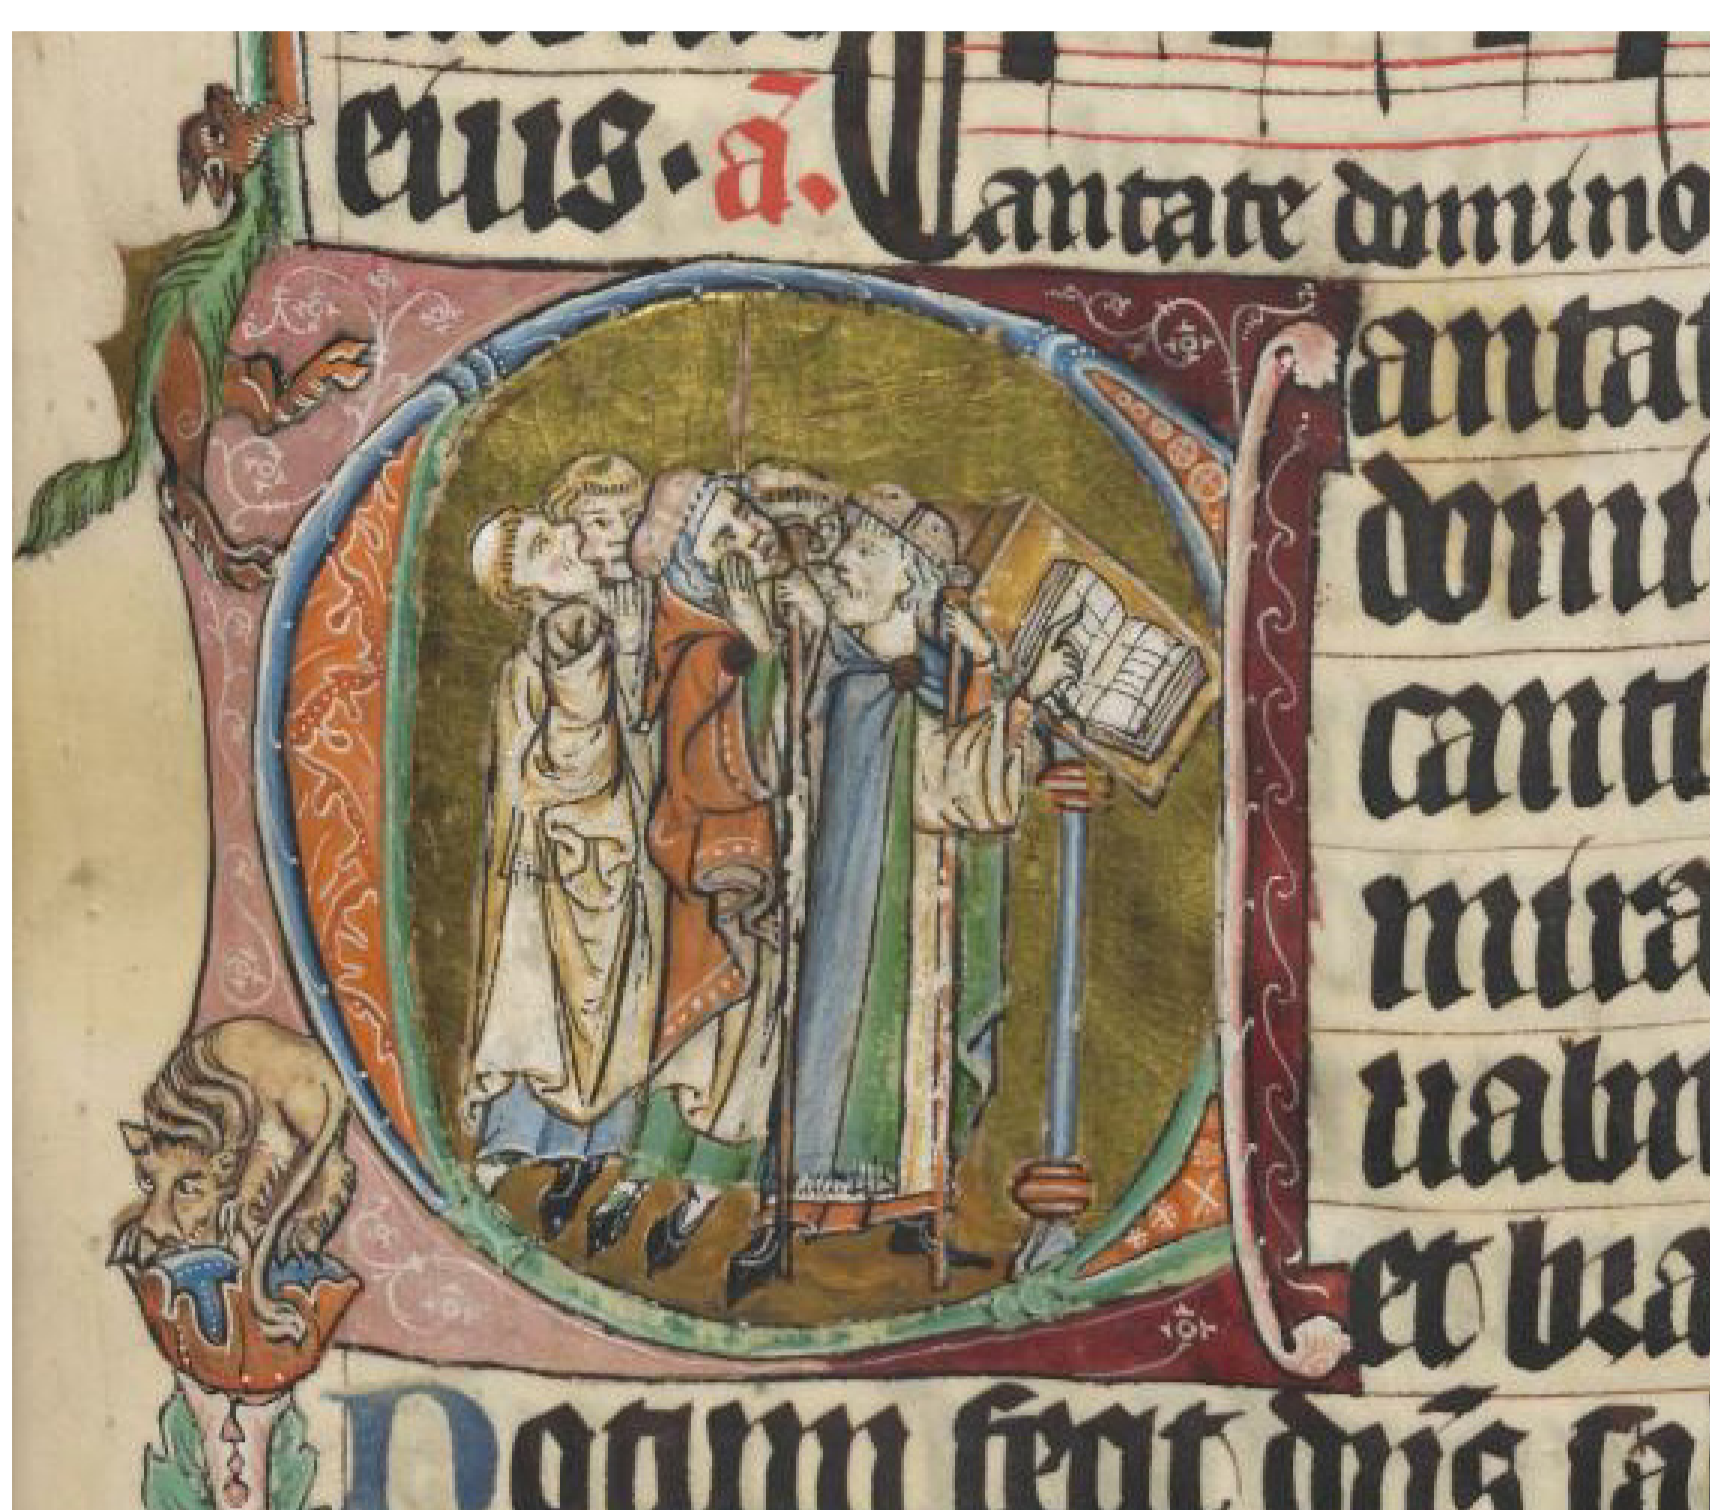 eius. a̅.
Cantate domino
Cantat
domi
canti
mira
uabit
et bra
Notum fecit dn̄s sa